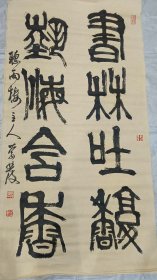 書林吐馥
藝海含香
聽雨樓主人